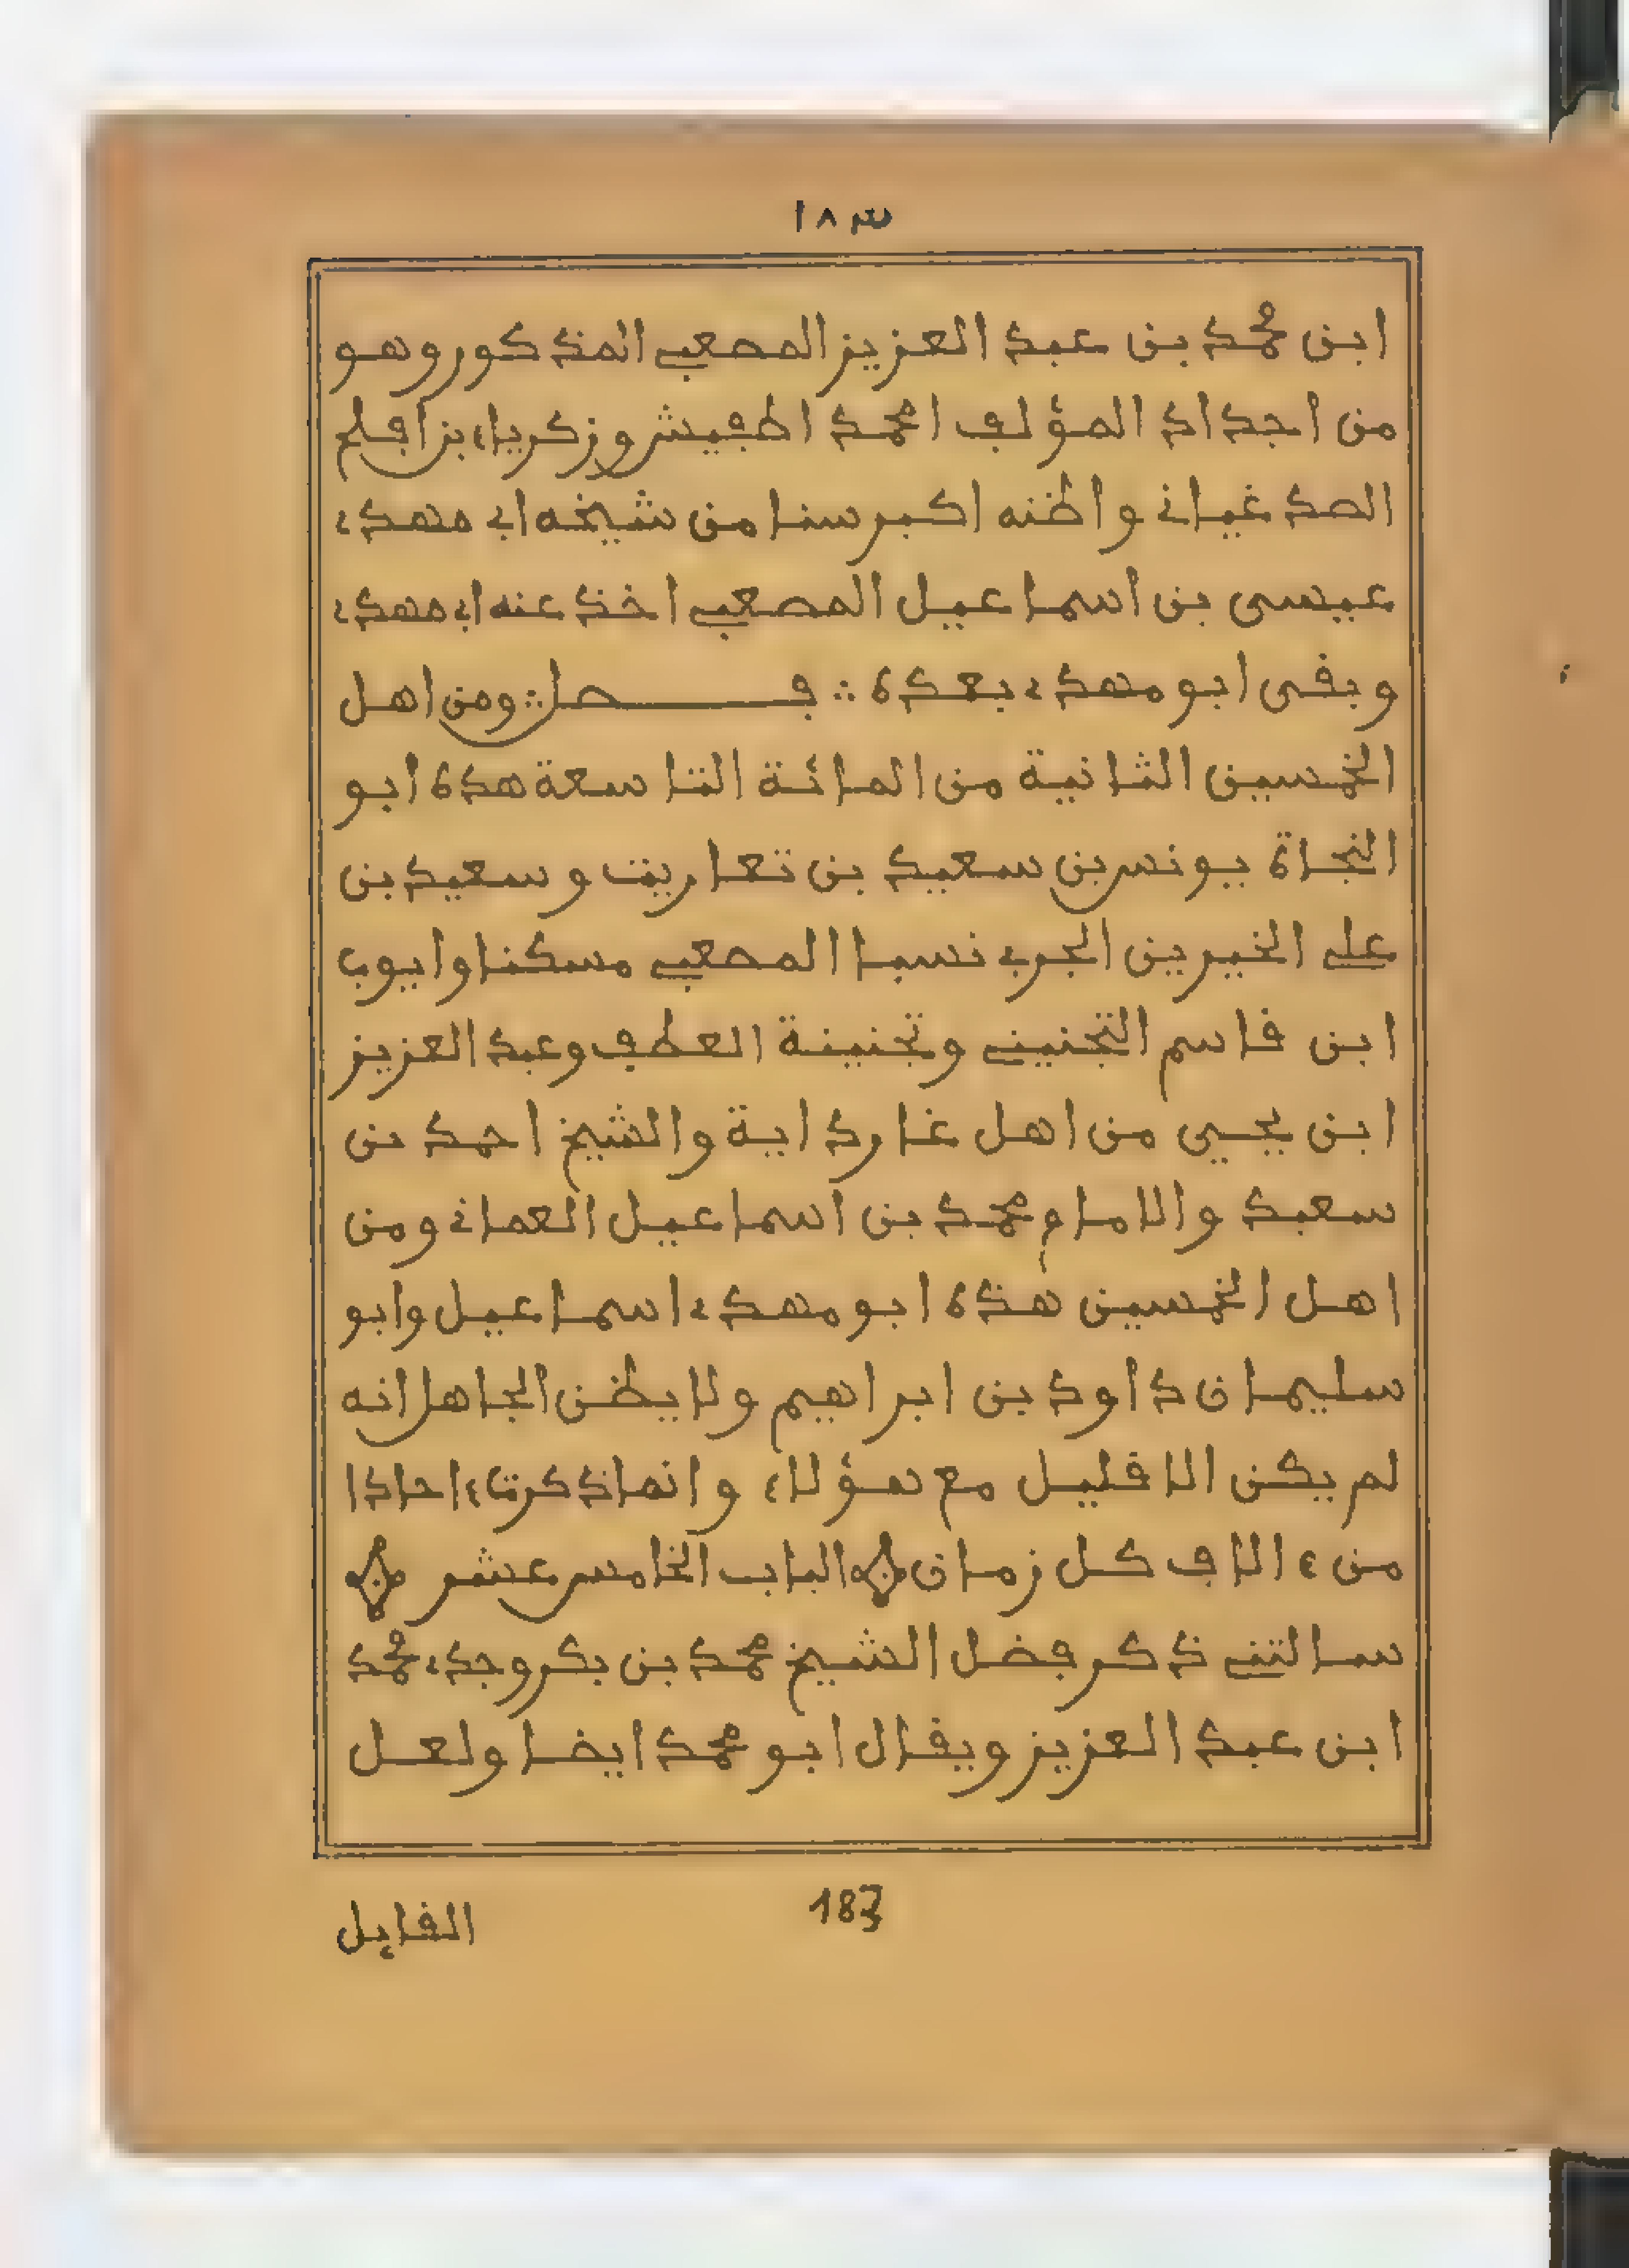 ١٨٣
ابن محمد بن عبد العزيز المصعبي المذكور وهو
من أجداد المؤلف امحمد اطفيش وزكرياء بن أفلح
الصدغياني وأظنه اكبر سنا من شيخه ابي مهدي
عيسى بن اسماعيل المصعبي اخذ عنه ابي مهدي
وبقى ابو مهدي بعده ∴ فصل ∴ ومن اهل
الخمسين الثانية من المائة التاسعة هده ابو
النجاة يونس بن سعيد بن تعاريت وسعيد بن
علي الخيرين الجربي نسبا المصعبي مسكنا وايوب
ابن قاسم التجنيني وتجنينة العطف وعبد العزيز
ابن يحيى من اهل غارداية والشيخ احمد بن
سعيد والامام محمد بن اسماعيل العماني ومن
اهل الخمسين هذه ابو مهدي اسماعيل وابو
سليمان دأود بن ابراهيم ولا يظن الجاهل انه
لم يكن الا قليل مع هؤلاء وانما ذكرت ءاحادا
من ءالاف كل زمان الباب الخامس عشر
سالتني ذكر فضل الشيخ محمد بن بكر وجدي محمد
ابن عبد العزيز ويقال ابو محمد ايضا ولعل
183
القايل